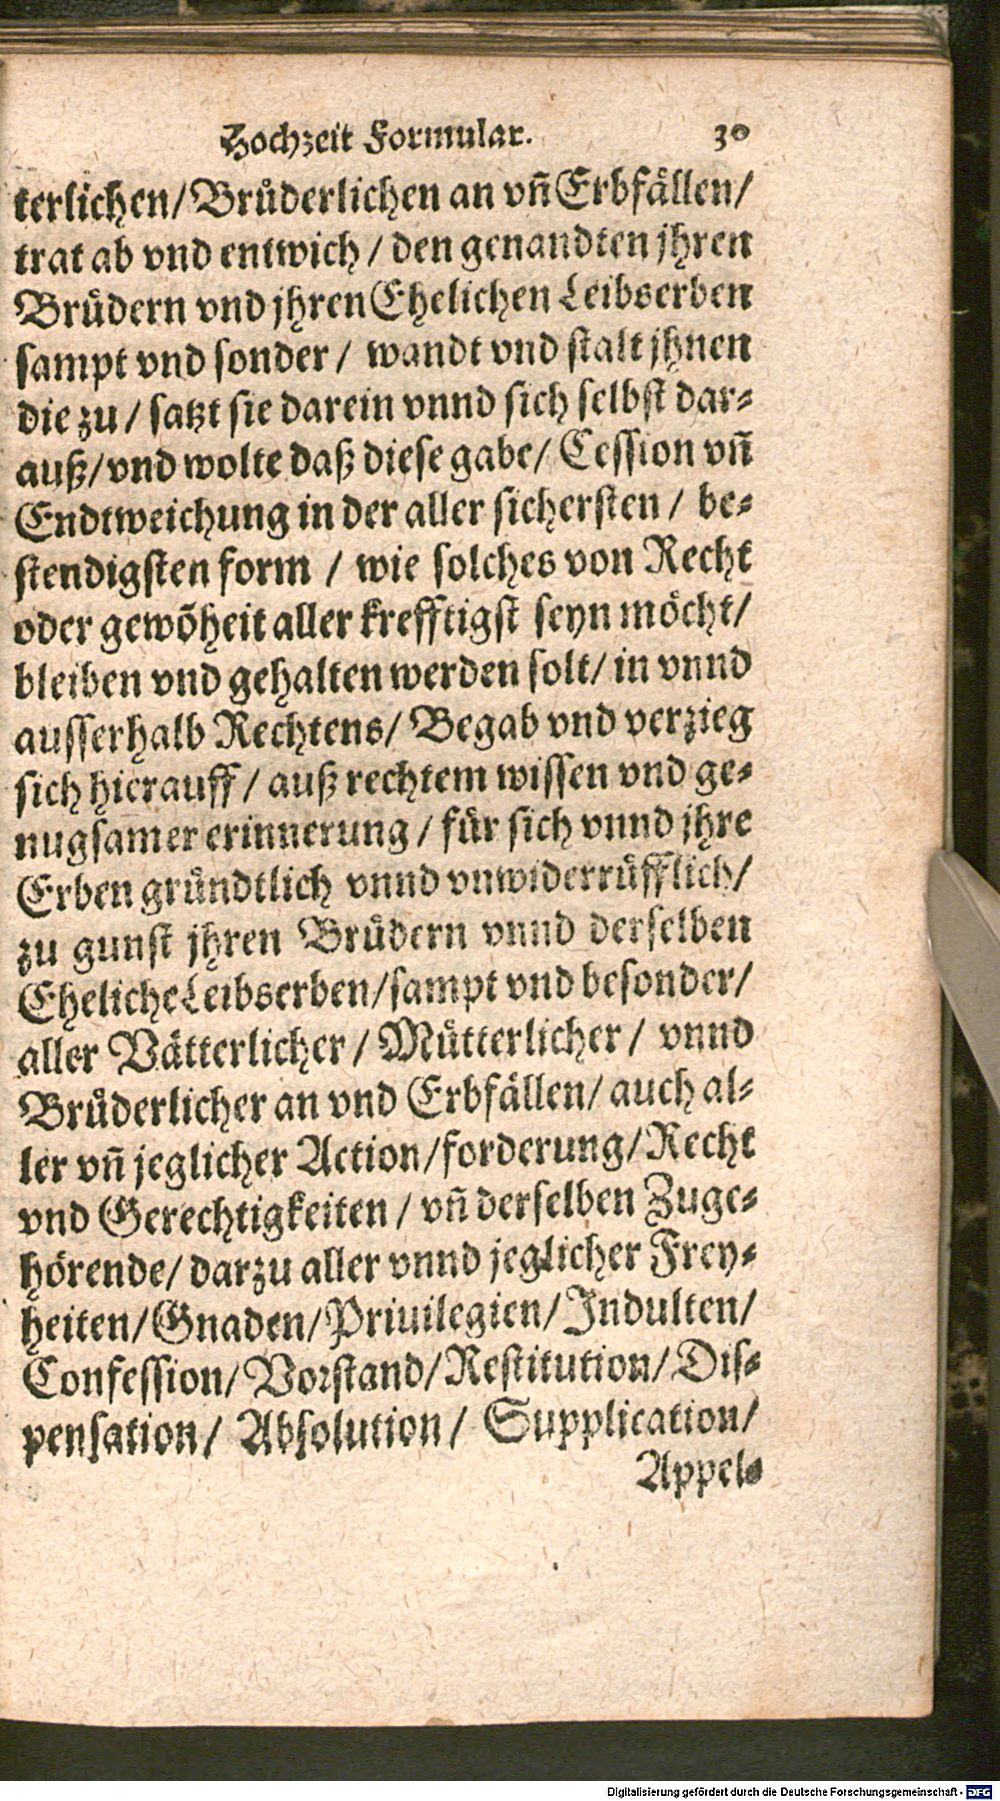 Hochzeit Formular. 30
terlichen/ Bruͤderlichen an vñ Erbfaͤllen/
trat ab vnd entwich / den genandten jhren
Bruͤdern vnd jhren Ehelichen Leibserben
sampt vnd sonder / wandt vnd stalt jhnen
die zu / satzt sie darein vnnd sich selbst dar-
auß/ vnd wolte daß diese gabe/ Cession vñ
Endtweichung in der aller sichersten / be-
stendigsten form / wie solches von Recht
oder gewõheit aller krefftigst seyn moͤcht/
bleiben vnd gehalten werden solt/ in vnnd
ausserhalb Rechtens/ Begab vnd verzieg
sich hierauff / auß rechtem wissen vnd ge-
nugsamer erinnerung / fuͤr sich vnnd jhre
Erben gruͤndtlich vnnd vnwiderruͤfflich/
zu gunst jhren Bruͤdern vnnd derselben
Eheliche Leibserben/ sampt vnd besonder/
aller Vaͤtterlicher / Muͤtterlicher / vnnd
Bruͤderlicher an vnd Erbfaͤllen/ auch al-
ler vñ jeglicher Action/ forderung/ Recht
vnd Gerechtigkeiten / vñ derselben Zuge-
hoͤrende/ darzu aller vnnd jeglicher Frey-
heiten/ Gnaden/ Priuilegien/ Indulten/
Confession/ Vorstand/ Restitution/ Dis-
pensation/ Absolution/ Supplication/
Appel-
Digitalisierung gefördert durch die Deutsche Forschungsgemeinschaft - DFG